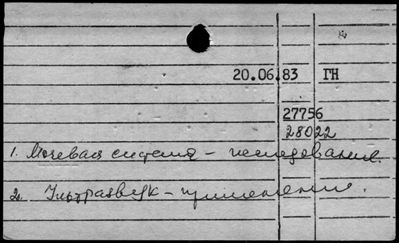 20.06.83 ГН
27756
28022
1. Мочевая система - исследование.
2. Ультразвук - применение.